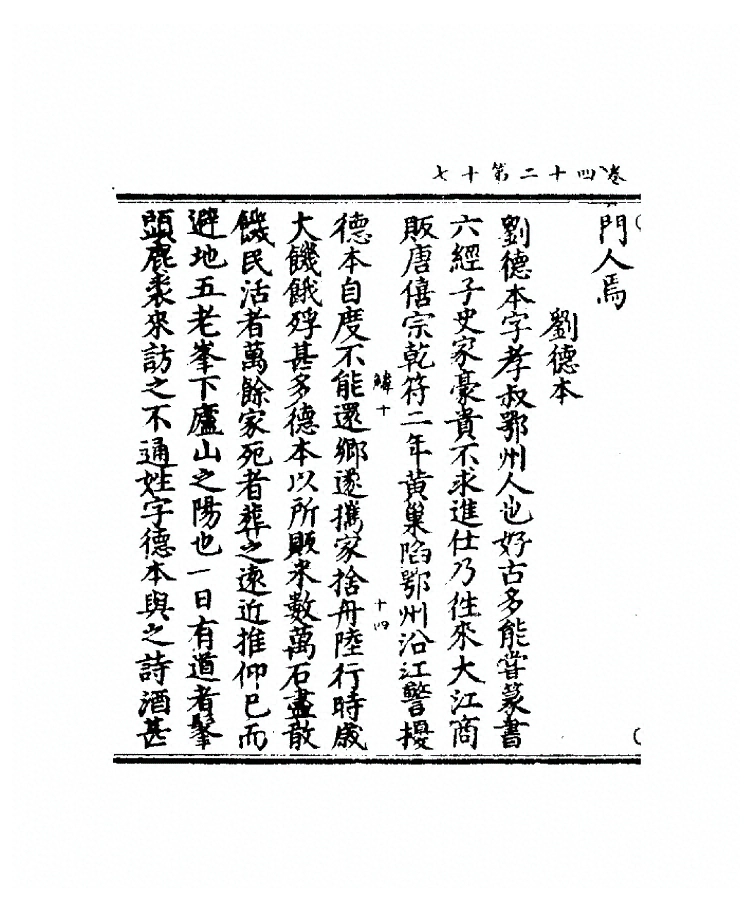 卷四十二第十七
門人焉
劉德本
劉德本字孝叔鄂州人也好古多能嘗篆書
六經子史家豪貴不求進仕乃徃來大江商
販唐僖宗乾符二年黄巢陷鄂州沿江警擾
鱗十
十四
德本自度不能還鄉遂攜家捨舟陸行時歲
大饑餓殍甚多德本以所販米數萬石盡散
饑民活者萬餘家死者葬之遠近推仰已而
避地五老峯下廬山之陽也一日有道者髼
頭鹿裘來訪之不通姓字德本與之詩酒甚